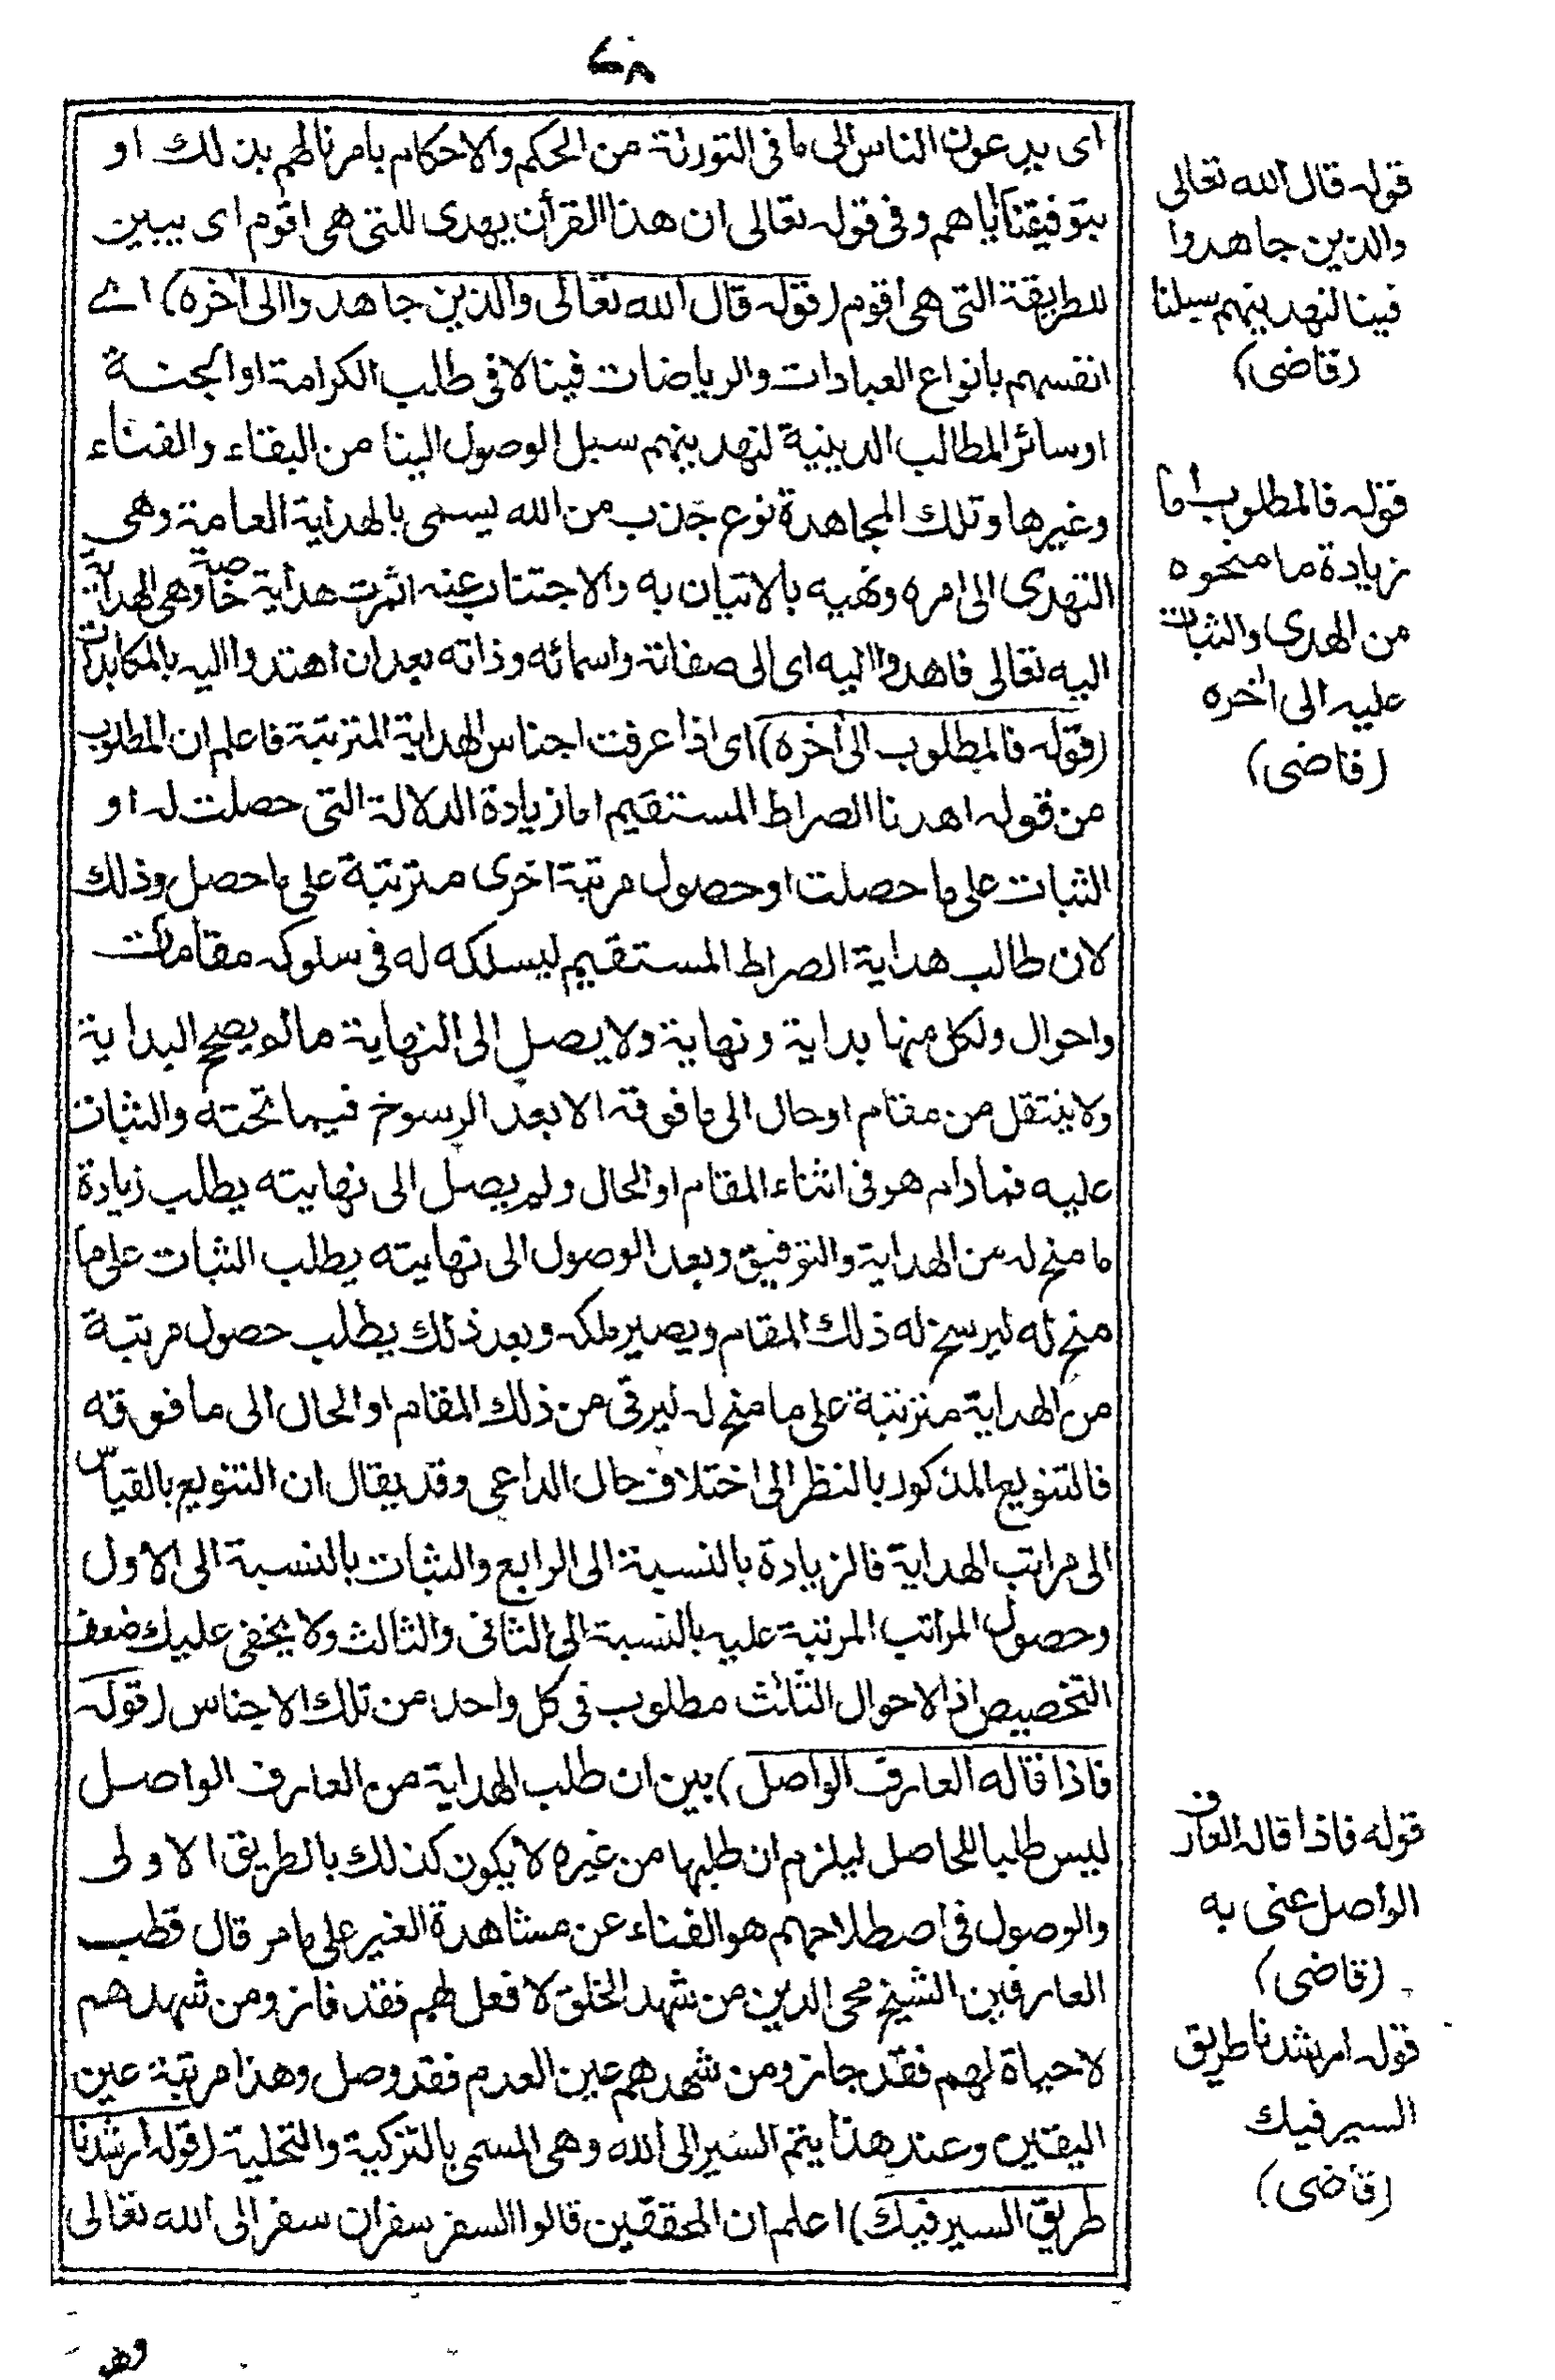 اى يدعون الناس الى ما فى التورىٰة من الحكم والاحكام بامرنا لهم بذلك او
بتوفيقنا اياهم وفى قوله تعالى ان هذا القرأن يهدى للتى هى اقوم اى يبين
للطريقة التى هى اقوم (قوله قال الله تعالى والذين جاهدوا الى أخره) اے
انفسهم بانواع العبادات والرياضات فينا لا فى طلب الكرامة او الجنة
او سائر المطالب الدينية لنهدينهم سبل الوصول الينا من البقاء والفناء
وغيرها وتلك المجاهدة نوع جذب من الله يسمى بالهداية العامة وهى
التهدى الى امره ونهيه بالاتيان به والاجتناب عنه اثمرت هداية خاصة وهى الهداية
اليه تعالى فاهدوا اليه اى الى صفاته واسمائه وذاته بعد ان اهتدوا اليه بالمكابدات
(قوله فالمطلوب الى أخره) اى اذا عرفت اجناس الهداية المترتبة فاعلم ان المطلوب
من قوله اهدنا الصراط المستقيم اما زيادة الدلالة التى حصلت له او
الثبات على ما حصلت او حصول مرتبة اخرى مترتبة على ما حصل وذلك
لان طالب هداية الصراط المستقيم ليسلكه له فى سلوكه مقامات
واحوال ولكل منها بداية ونهاية ولا يصل الى النهاية مالم يصح البداية
ولا ينتقل من مقام او حال الى ما فوقه الا بعد الرسوخ فيما تحته والثبات
عليه فمادام هو فى اثناء المقام او الحال ولم يصل الى نهايته يطلب زيادة
ما منح له من الهداية والتوفيق وبعد الوصول الى نهايته يطلب الثبات على ما
منح له ليرسخ له ذلك المقام ويصير ملكه وبعد ذلك يطلب حصول مرتبة
من الهداية مترتبة على ما منح له ليرقى من ذلك المقام او الحال الى ما فوقه
فالتنويع المذكور بالنظر الى اختلاف حال الداعى وقد يقال ان التنويع بالقياس
الى مراتب الهداية فالزيادة بالنسبة الى الرابع والثبات بالنسبة الى الاول
وحصول المراتب المرتبة عليه بالنسبة الى الثانى والثالث ولا يخفى عليك ضعف
التخصيص اذ الاحوال الثلٰث مطلوب فى كل واحد من تلك الاجناس (قوله
فاذا قاله العارف الواصل) بين ان طلب الهداية من العارف الواصل
ليس طلبا للحاصل ليلزم ان طلبها من غيره لا يكون كذلك بالطريق الاولى
والوصول فى اصطلاحهم هو الفناء عن مشاهدة الغير على ما مر قال قطب
العارفين الشيخ محى الدين من شهد الخلق لا فعل لهم فقد فاز ومن شهدهم
لا حياة لهم فقد جاز ومن شهدهم عين العدم فقد وصل وهذا مرتبة عين
اليقين وعند هذا يتم السير الى الله وهى المسمى بالتزكية والتحلية (قوله ارشدنا
طريق السير فيك) اعلم ان المحققين قالوا السفر سفران سفر الى الله تعالى
وهو
قوله قال الله تعالى
والذين جاهدوا
فينا لنهدينهم سبلنا
(قاضى)
قوله فالمطلوب اما
زيادة ما منحوه
من الهدى والثبات
عليه الى أخره
(قاضى)
قوله فاذا قاله العارف
الواصل عنى به
(قاضى)
قوله ارشدنا طريق
السير فيك
(قاضى)